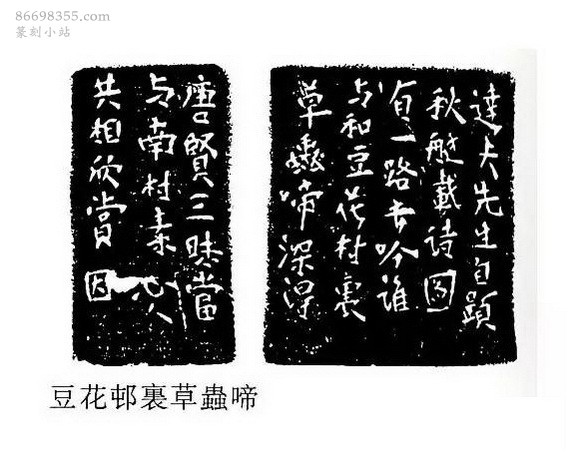 86698355.com
篆刻小站
達夫先生自題
秋艇載詩圖
有一路書吟誰
与和豆花村裏
草蟲啼深得
唐賢三昧當
与南村素心人
共相欣賞
豆花邨裏草蟲啼